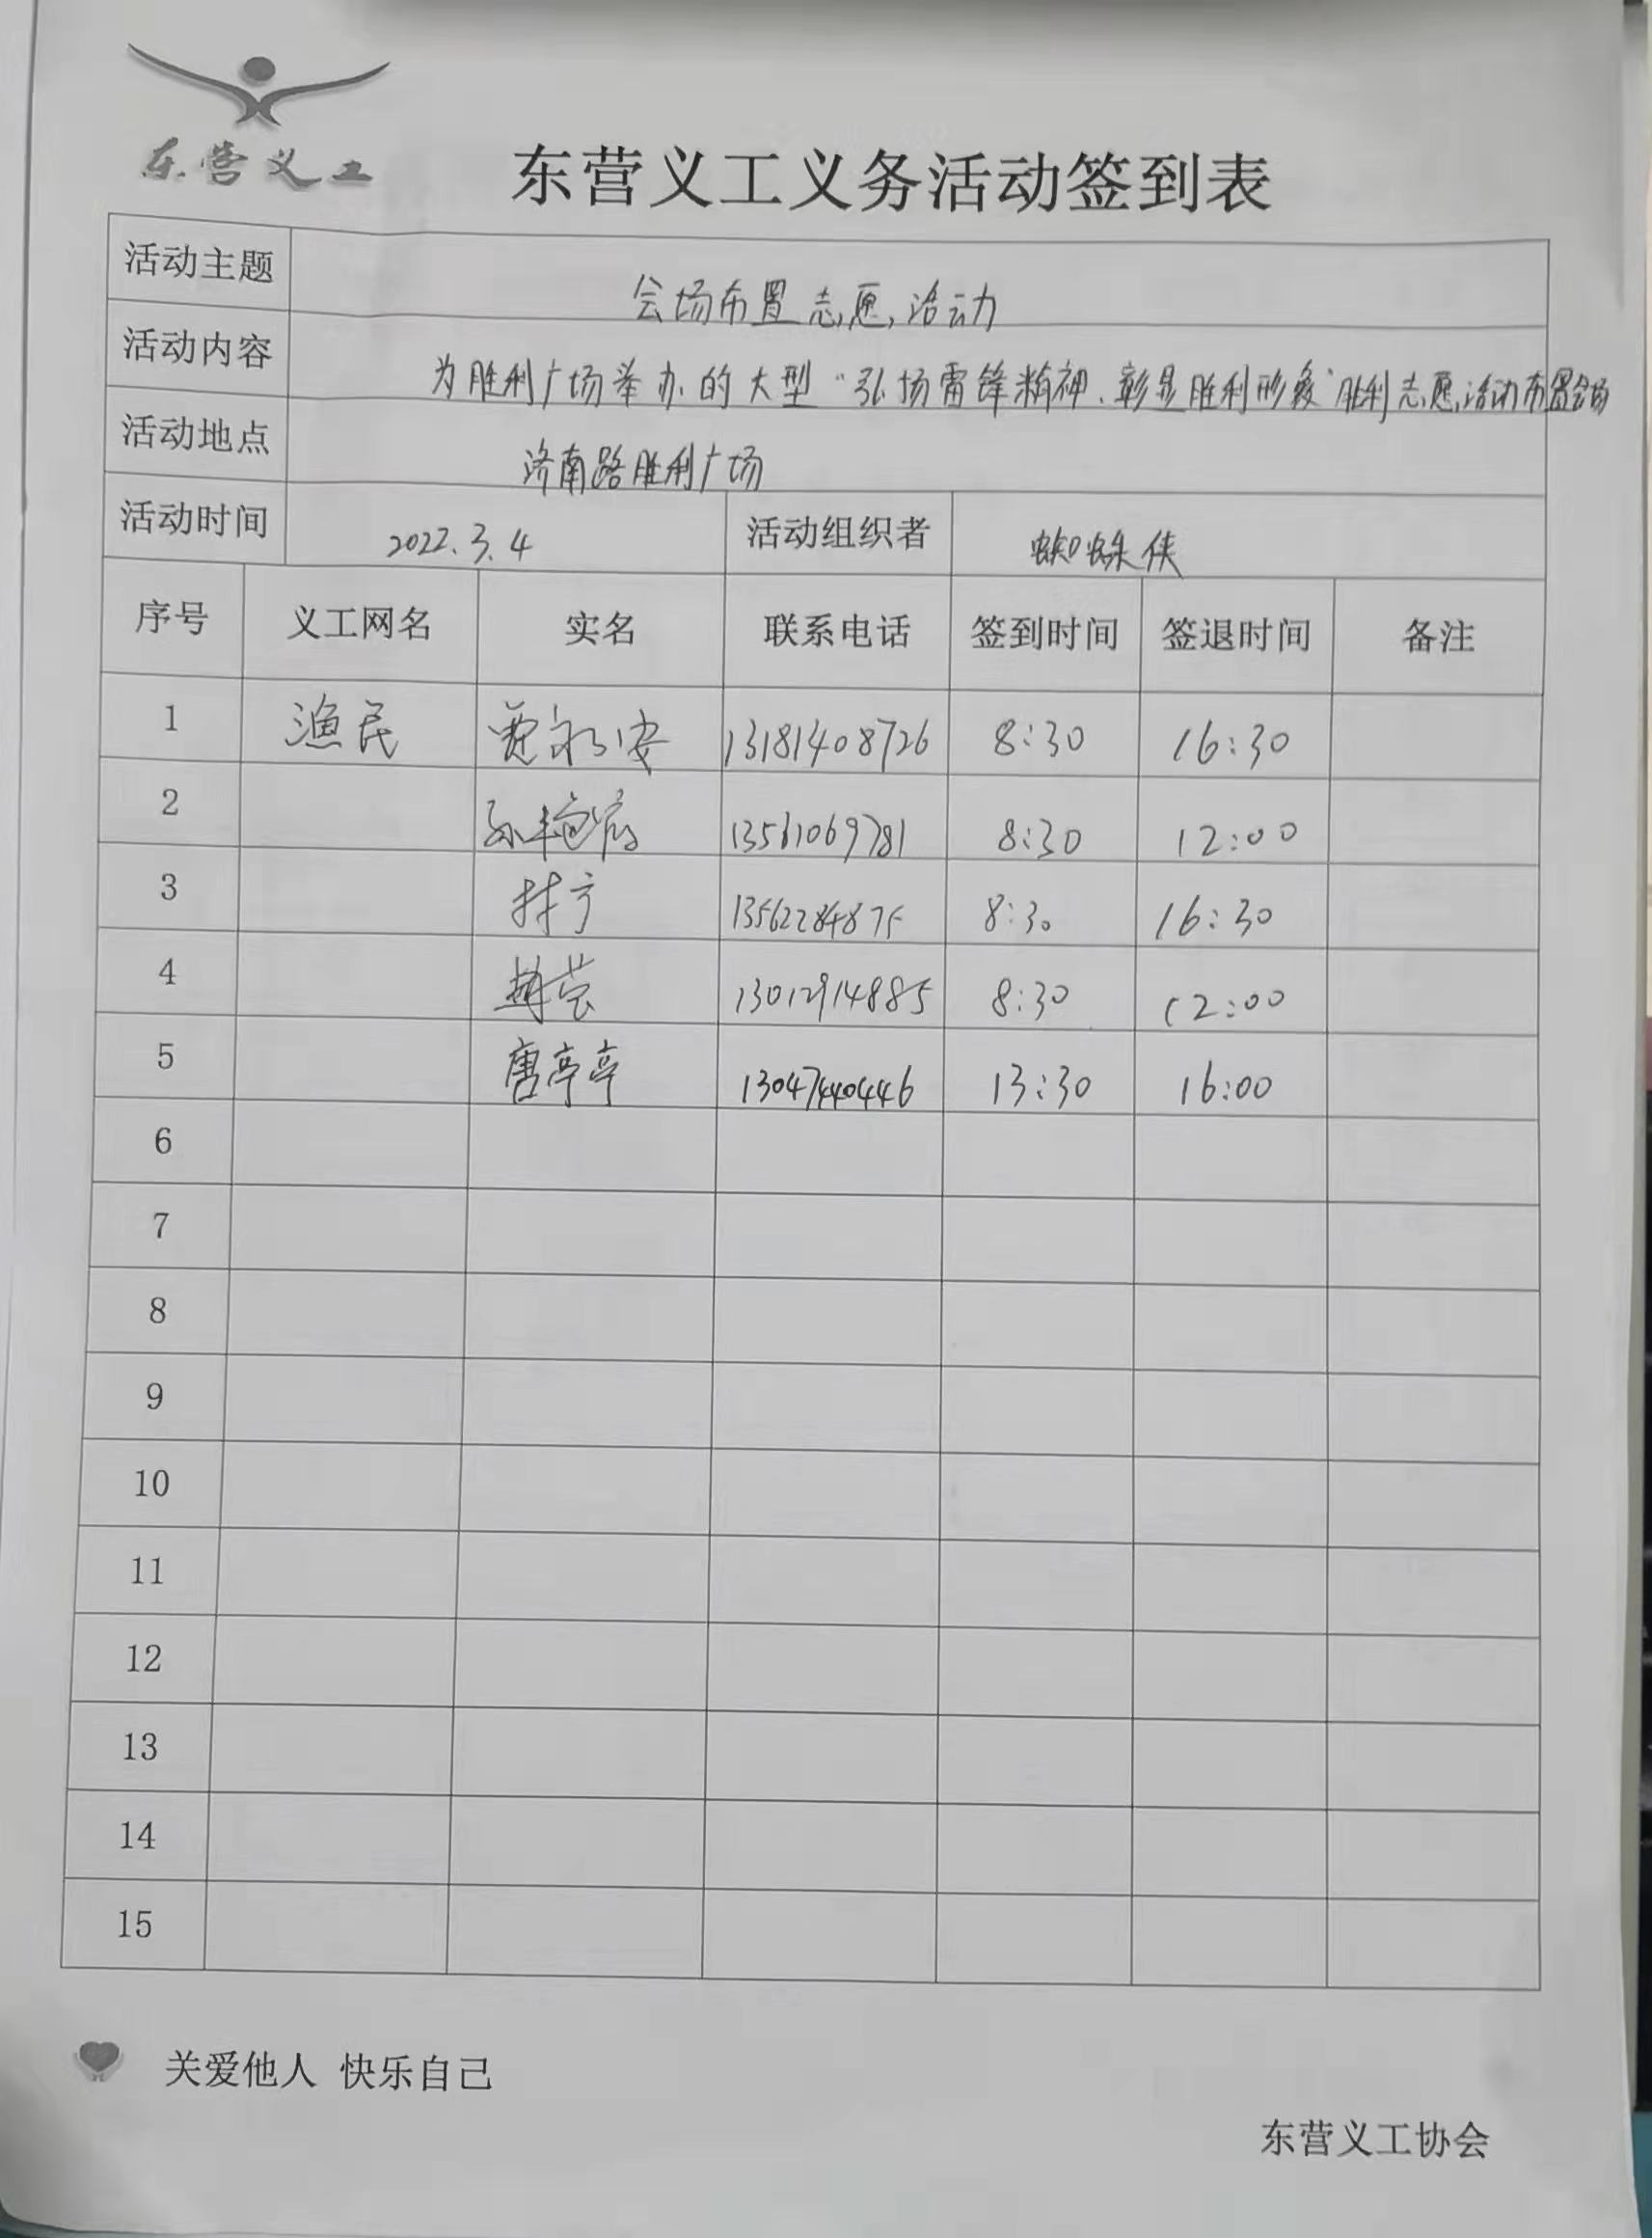 东营义工
东营义工义务活动签到表
活动主题 会场布置志愿活动
活动内容 为胜利广场举办的大型“弘扬雷锋精神、彰显胜利形象”胜利志愿活动布置会场
活动地点 济南路胜利广场
活动时间 2022.3.4 活动组织者 蜘蛛侠
序号 义工网名 实名 联系电话 签到时间 签退时间 备注
1 渔民 贾永安 13181408726 8:30 16:30
2 8:30 12:00
3 13562284875 8:30 16:30
4 13012914885 8:30 12:00
5 唐亭亭 13047440446 13:30 16:00
6
7
8
9
10
11
12
13
14
15
关爱他人 快乐自己
东营义工协会